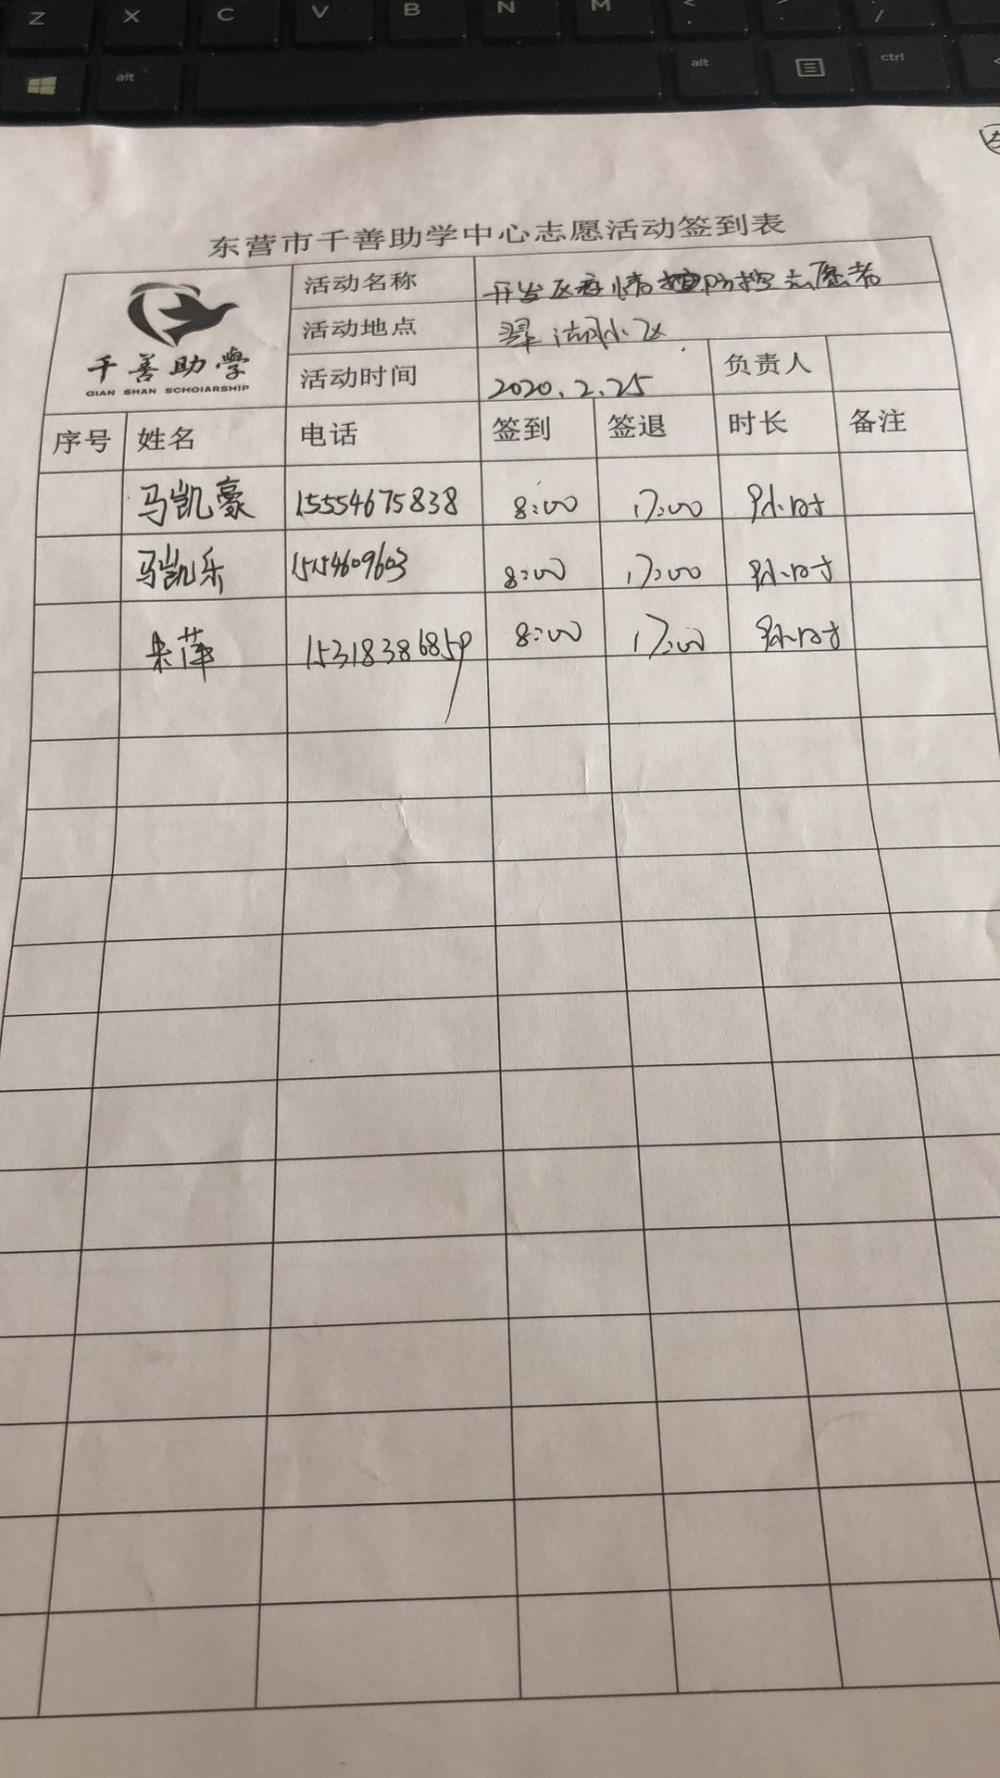 Z X C V B N M < . > . /
alt alt ctrl
东营市千善助学中心志愿活动签到表
千善助学
QIAN SHAN SCHOIARSHIP
活动名称 开发区疫情防控志愿者
活动地点 翠湖小区
活动时间 2020.2.25 负责人
序号 姓名 电话 签到 签退 时长 备注
马凯豪 15554675838 8:00 17:00 9小时
马凯乐 15154609603 8:00 17:00 9小时
朱萍 15318386859 8:00 17:00 9小时